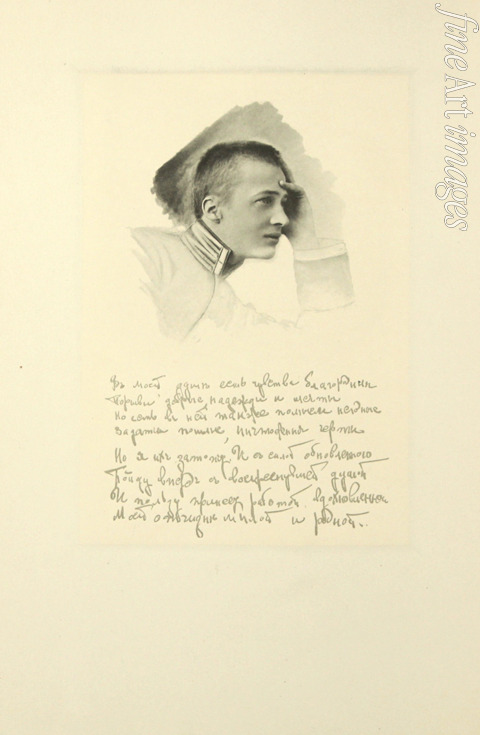 fine Art images
Въ моей душѣ есть чувства благородны
Порывы дорогие, надежды и мечты
Но есть въ ней также полные
Задатки пошлые, ничтожныя черты
Но я ихъ затопчу. И съ силой обновленною
Пойду впередъ съ воскреснувшей душой
И пользу принесу работой вдохновенною
Моей отчизнѣ милой и родной..